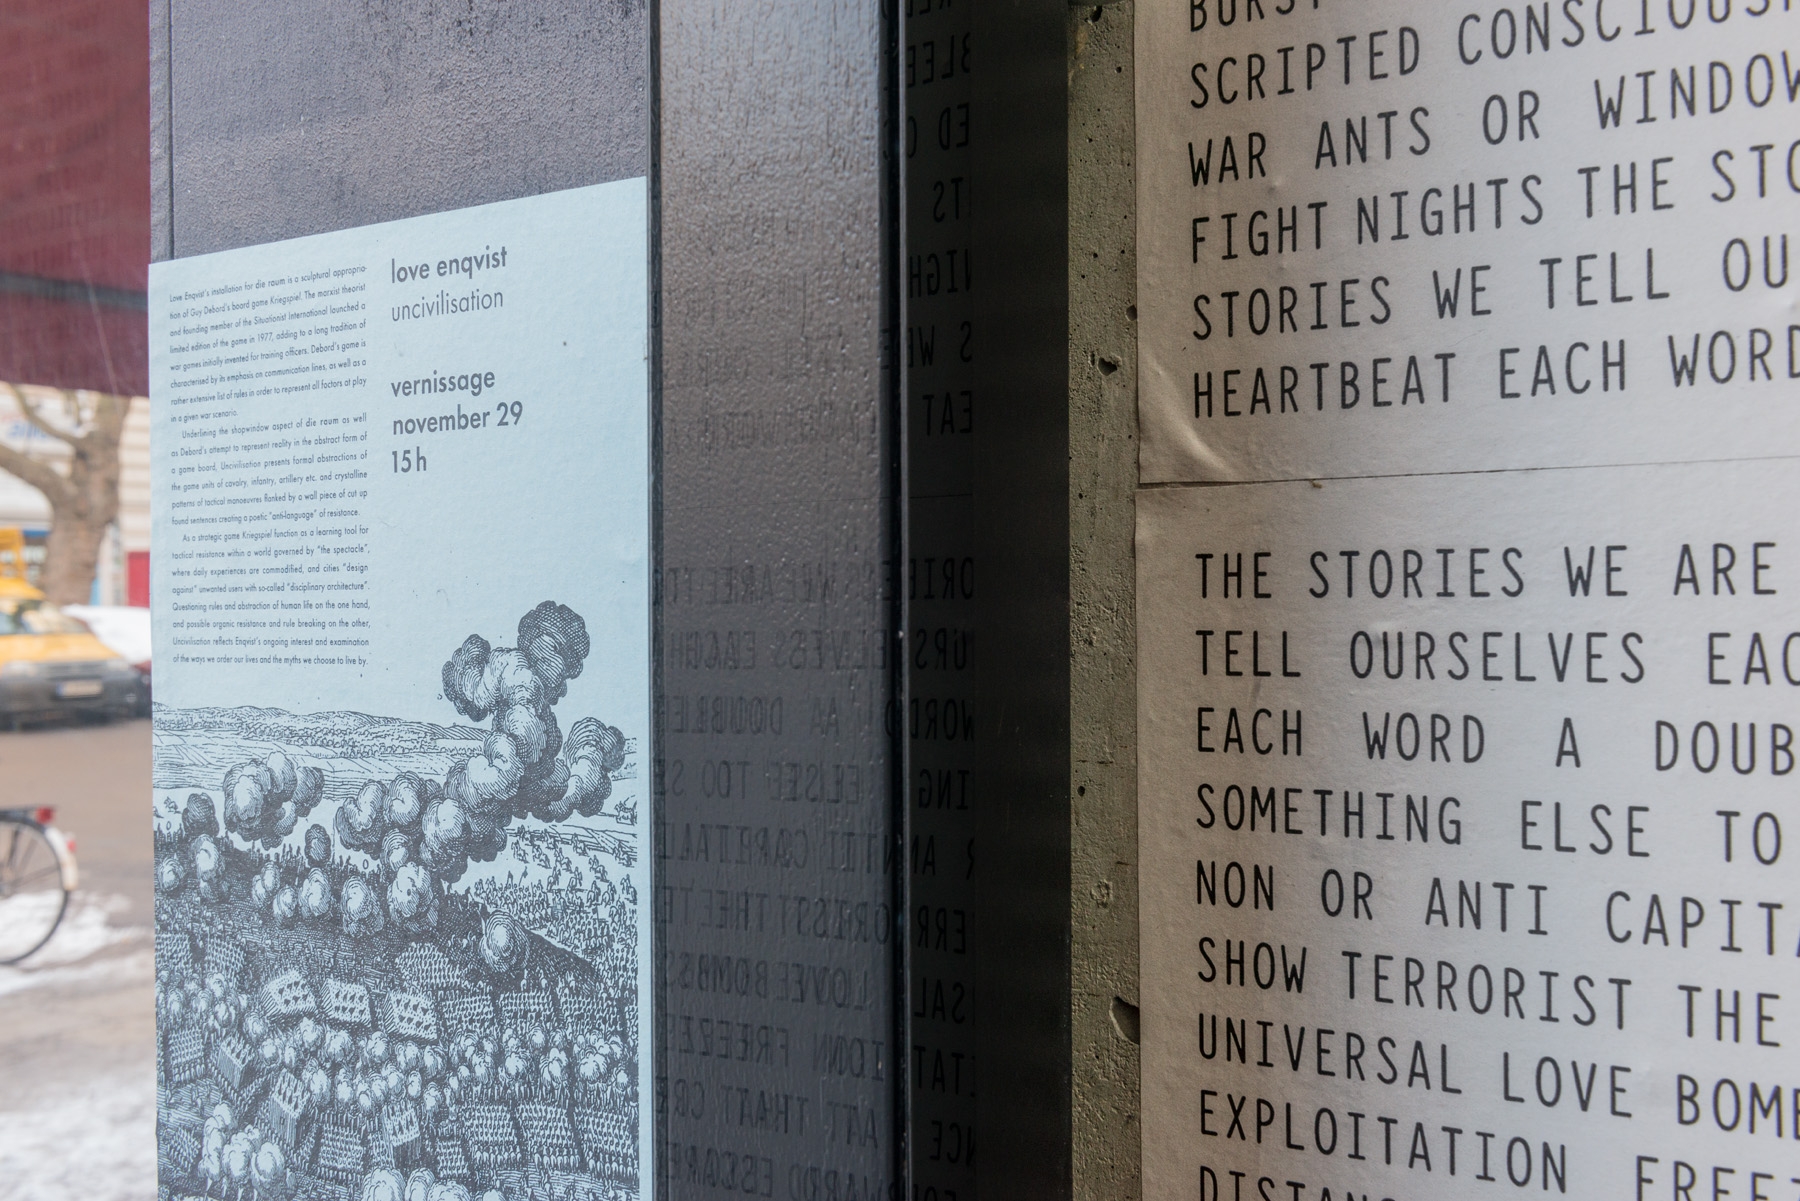 Love Enqvist's installation for die raum is a sculptural appropria-
tion of Guy Debord's board game Kriegspiel. The marxist theorist
and founding member of the Situationist International launched a
limited edition of the game in 1977, adding to a long tradition of
war games initially invented for training officers. Debord's game is
characterised by its emphasis on communication lines, as well as a
rather extensive list of rules in order to represent all factors at play
in a given war scenario.
Underlining the shopwindow aspect of die raum as well
as Debord's attempt to represent reality in the abstract form of
a game board, Uncivilisation presents formal abstractions of
the game units of cavalry, infantry, artillery etc. and crystalline
patterns of tactical manoeuvres flanked by a wall piece of cut up
found sentences creating a poetic "anti-language" of resistance.
As a strategic game Kriegspiel function as a learning tool for
tactical resistance within a world governed by "the spectacle",
where daily experiences are commodified, and cities "design
against" unwanted users with so-called "disciplinary architecture".
Questioning rules and abstraction of human life on the one hand,
and possible organic resistance and rule breaking on the other,
Uncivilisation reflects Enqvist's ongoing interest and examination
of the ways we order our lives and the myths we choose to live by.
love enqvist
uncivilisation
vernissage
november 29
15 h
SCRIPTED
WAR ANTS OR
FIGHT NIGHTS THE
STORIES WE TELL
HEARTBEAT EACH WORD
THE STORIES WE ARE
TELL OURSELVES
EACH WORD A
SOMETHING ELSE TO
NON OR ANTI
SHOW TERRORIST THE
UNIVERSAL LOVE
EXPLOITATION